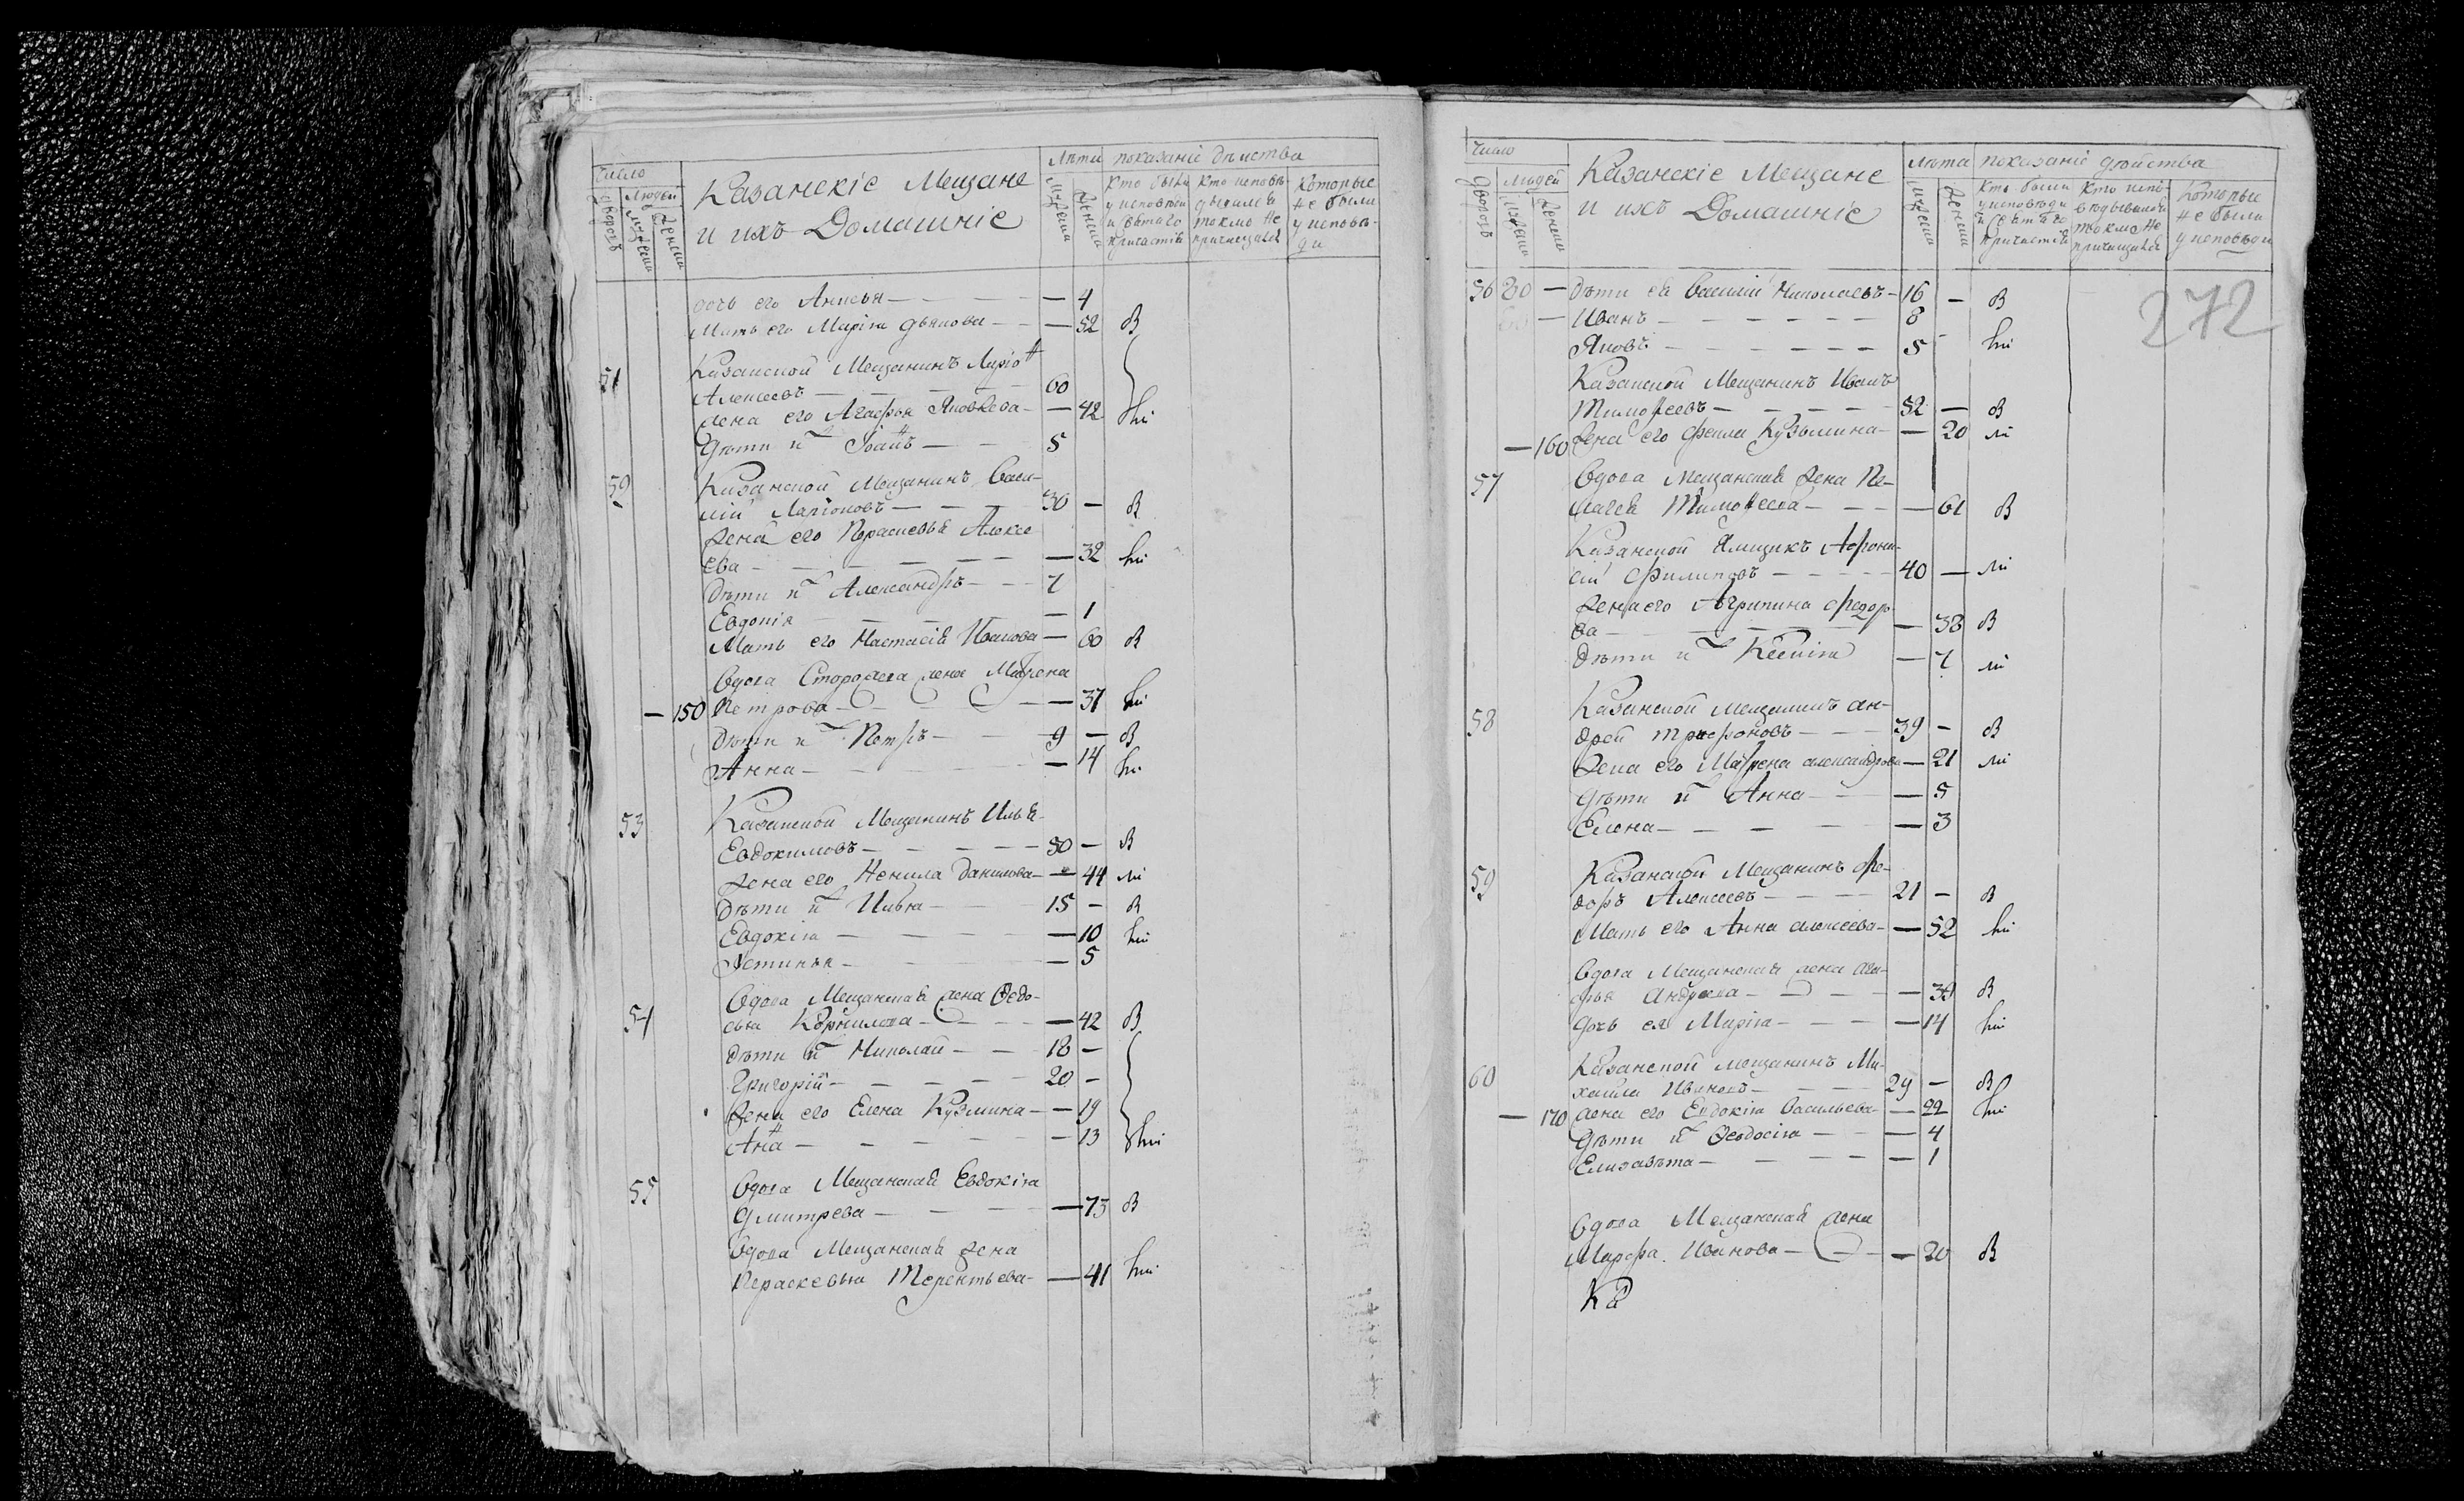 число
дворовъ
людей
мужеска
женска
Казанскіе Мещане
и ихъ Домашніе
Лѣта
мужеска
женска
показаніе дѣиства
Кто были
у исповѣди
и святаго
причастія
Кто исповѣ-
дывался
токмо не
причащался
Которые
не были
у исповѣ-
ди
дочь его Анисья — — 4
Мать его Маріа — 52 В
51 Казанской Мещанинъ Ларіо н
Алексеевъ — 60
жена его Агафья Яковлева — 42 ли
Дѣти и Іоанъ — 5
52 Казанской Мещанинъ Васи-
лій Ларіоновъ — 30 — В
жена его Параскевья Алексе
ева — 32 ли
Дѣти и Александръ — 7
Евдокія — 1
Мать его Настасія Иванова — 60 В
Вдова жена Матрена
— 150 Петрова — 37 ли
Дѣти и Петръ — 9 — В
Анна — 14 ли
53 Казанской Мещанинъ Илья
Евдокимовъ — 50 — В
жена его Ненила Данилова — 44 ли
Дѣти и Илья — 15 — В
Евдокіа — 10 ли
Устинья — 5
54 Вдова Мещанская жена Ѳедо-
сья Корнилова — 42 В
Дѣти и Николай — 18 —
Григорій — 20 —
жена его Елена Кузмина — 19
Анна — 13 ли
55 Вдова Мещанская Евдокіа
Дмитрева — 73 В
Вдова Мещанская жена
Параскевья Терентьева — 41 ли
число
дворовъ
людей
мужеска
женска
Казанскіе Мещане
и ихъ Домашніе
лѣта
мужеска
женска
показаніе дѣйства
Кто были
у исповѣди
и святаго
причастія
Кто испо-
вѣдывался
токмо не
причащался
Которые
не были
у исповѣди
272
56 — Дѣти ея Василій Николаевъ — 16 — В
— Иванъ — 8
Яковъ — 5 ли
Казанской Мещанинъ Иванъ
Тимоѳеевъ — 52 — В
— 160 жена его Фекла Кузьмина — 20 ли
57 Вдова Мещанская жена Пе-
лагея Тимоѳеева — 61 В
Казанской Ямщикъ Афона-
сій Филиповъ — 40 — ли
жена его Агрипина Федоро
ва — 38 В
Дѣти и Ксеніа — 7 ли
58 Казанской Мещанинъ Ан-
дрей Трифоновъ — 39 — В
жена его Матрена Александрова — 21 ли
Дѣти и Анна — 5
Елена — 3
59 Казанской Мещанинъ Фе-
доръ Алексеевъ — 21 — В
Мать его Анна Алексеева — 52 ли
Вдова Мещанская жена Ага-
фья Андреева — В
Дочь ея Маріа — 14 ли
60 Казанской Мещанинъ Ми-
хайла Ивановъ — 29 — В
— 170 жена его Евдокіа Васильева — 22 ли
Дѣти и Ѳеодосіа — 4
Елизавѣта — 1
Вдова Мещанская жена
Марфа Иванова — 20 В
Ка